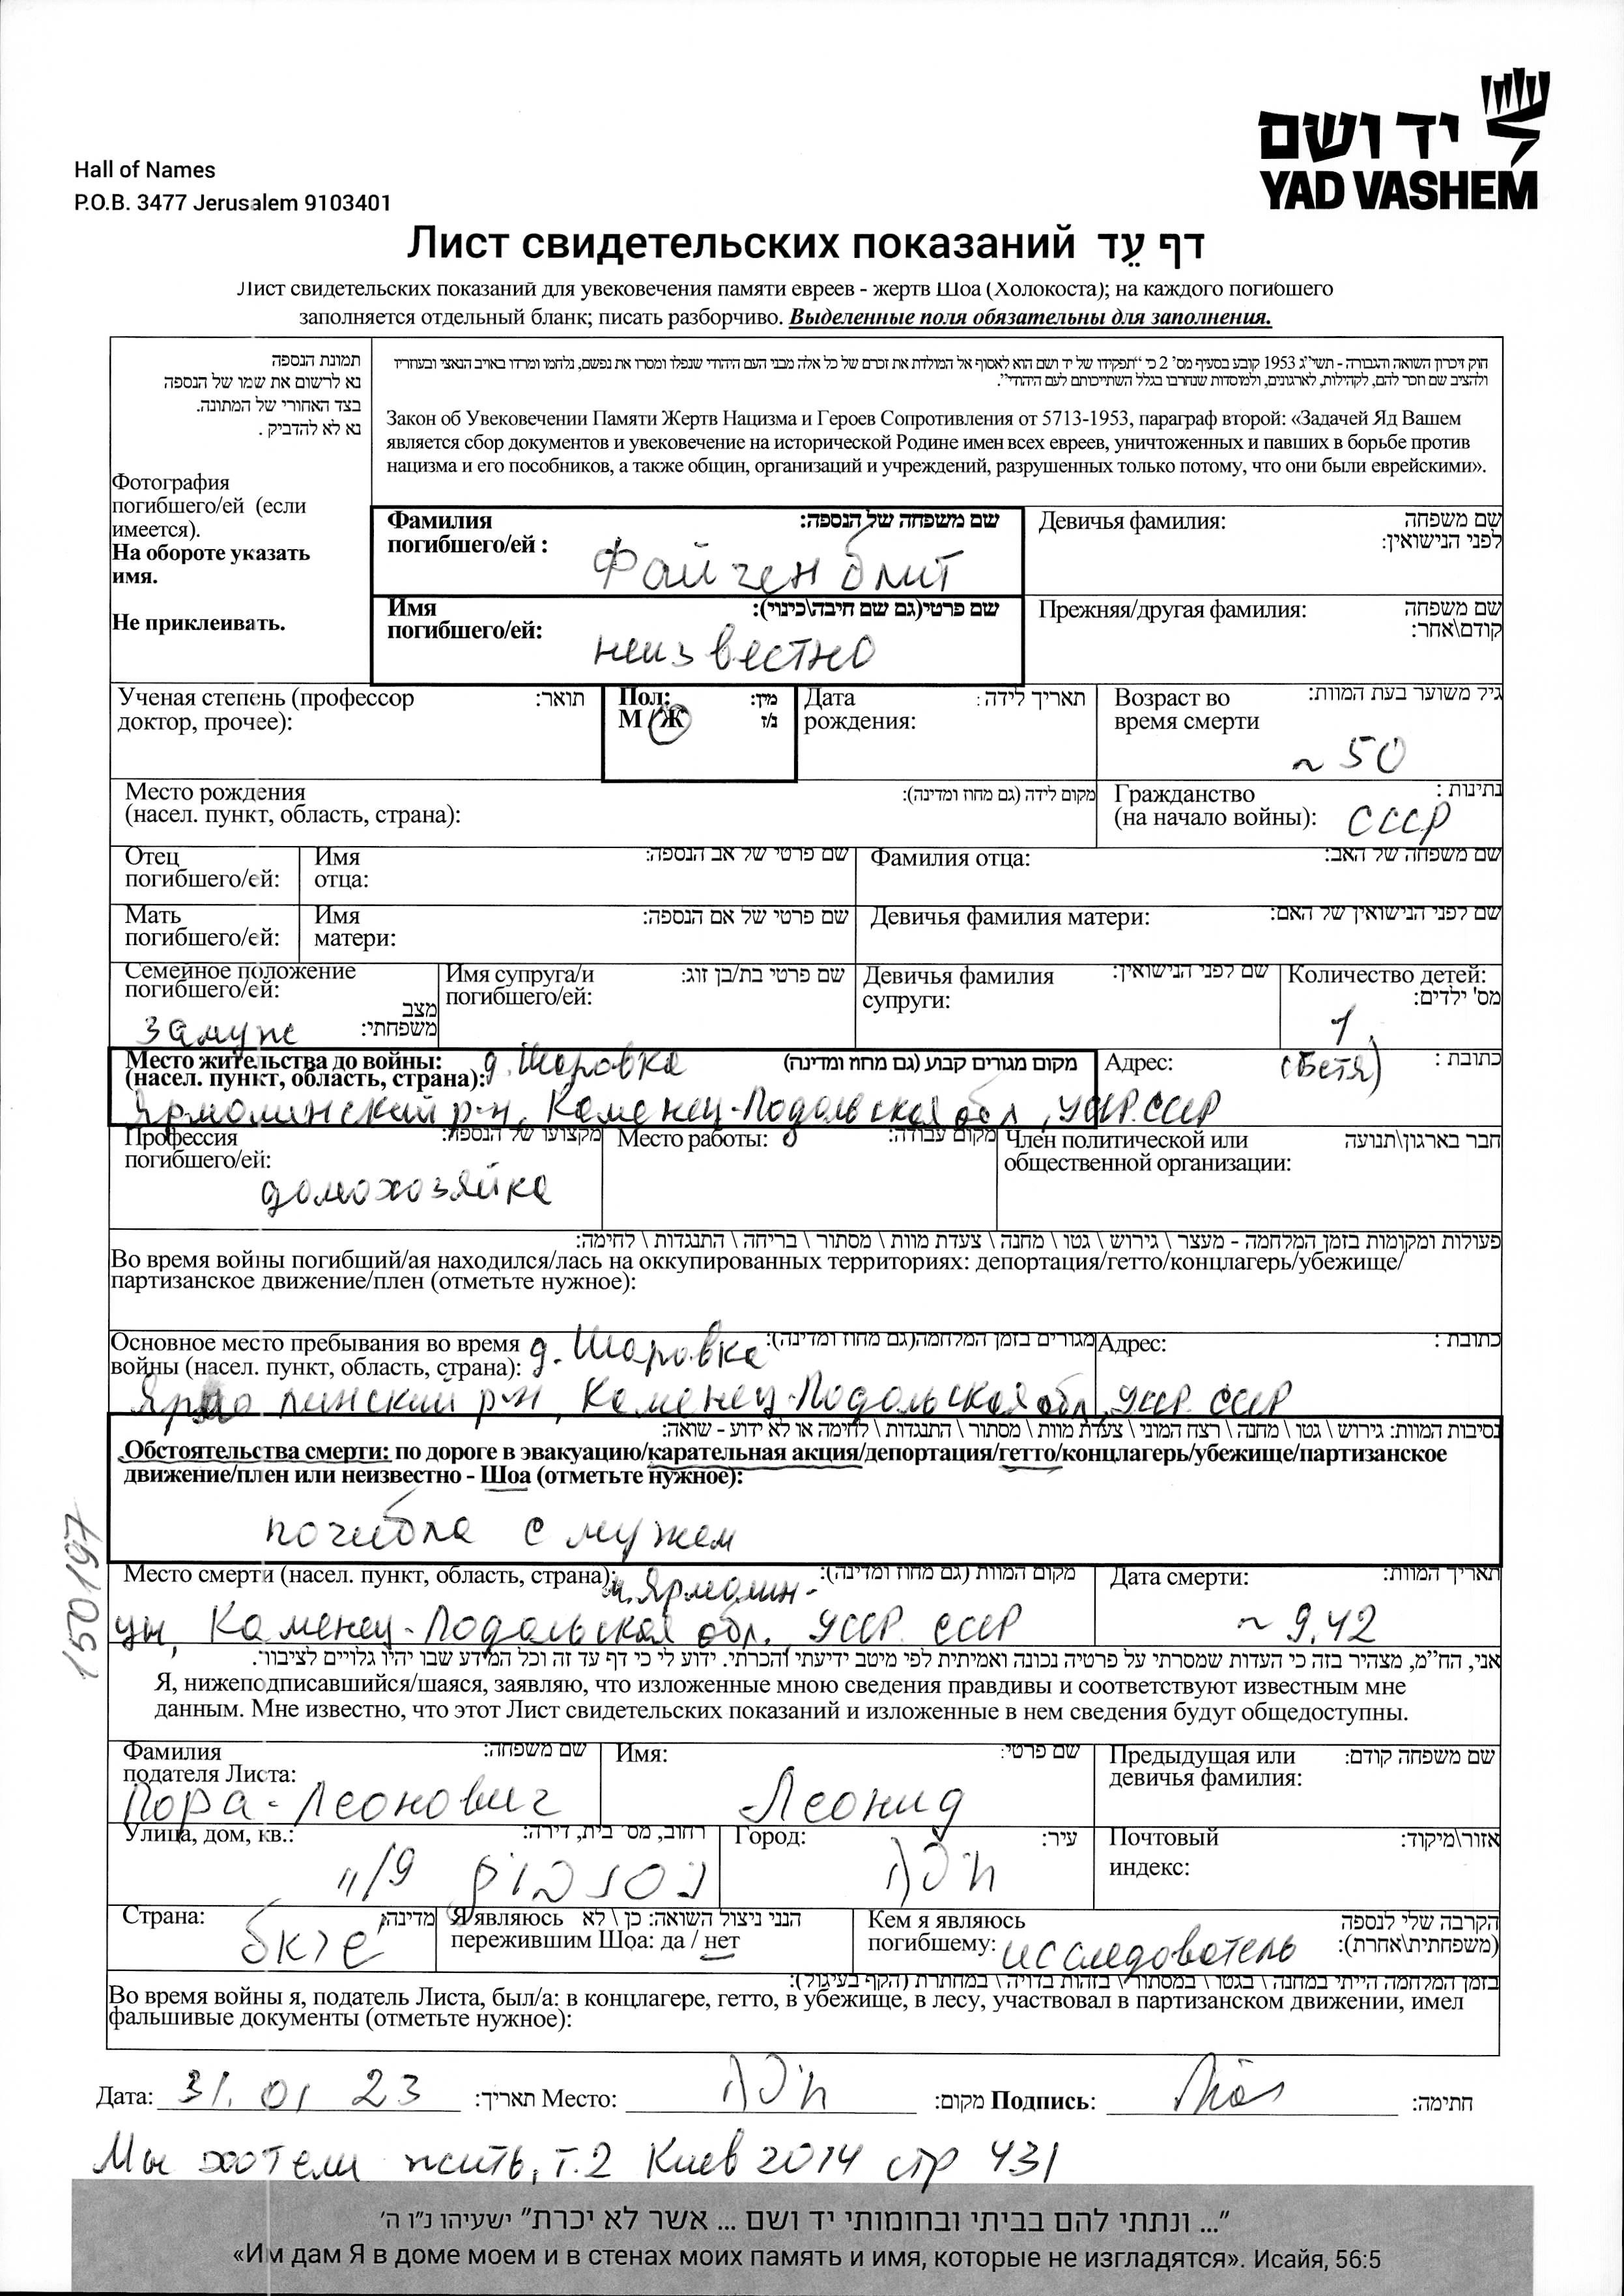 יד ושם
YAD VASHEM
Hall of Names
P.O.B. 3477 Jerusalem 9103401
Лист свидетельских показаний דף עֵד
Лист свидетельских показаний для увековечения памяти евреев - жертв Шоа (Холокоста); на каждого погибшего
заполняется отдельный бланк; писать разборчиво. Выделенные поля обязательны для заполнения.
תמונת הנספה
נא לרשום את שמו של הנספה
בצד האחורי של המתונה.
נא לא להדביק .
Фотография
погибшего/ей (если
имеется).
На обороте указать
имя.
Не приклеивать.
חוק זיכרון השואה והגבורה - תשי"ג 1953 קובע בסעיף מס' 2 כי "תפקידו של יד ושם הוא לאסוף אל המולדת את זכרם של כל אלה מבני העם היהודי שנפלו ומסרו את נפשם, נלחמו ומרדו באויב הנאצי ובעוזריו
ולהציב שם וזכר להם, לקהילות, לארגונים, ולמוסדות שנחרבו בגלל השתייכותם לעם היהודי".
Закон об Увековечении Памяти Жертв Нацизма и Героев Сопротивления от 5713-1953, параграф второй: «Задачей Яд Вашем
является сбор документов и увековечение на исторической Родине имен всех евреев, уничтоженных и павших в борьбе против
нацизма и его пособников, а также общин, организаций и учреждений, разрушенных только потому, что они были еврейскими».
Фамилия שם משפחה של הנספה:
погибшего/ей :
Файгенблит
Девичья фамилия: שם משפחה
לפני הנישואין:
Имя שם פרטי(גם שם חיבה\כינוי):
погибшего/ей:
неизвестно
Прежняя/другая фамилия: שם משפחה
קודם\אחר:
Ученая степень (профессор תואר:
доктор, прочее):
Пол: מין:
М / Ж ז/נ
Дата תאריך לידה :
рождения:
Возраст во גיל משוער בעת המוות:
время смерти
~ 50
Место рождения מקום לידה (גם מחוז ומדינה):
(насел. пункт, область, страна):
Гражданство נתינות :
(на начало войны): СССР
Отец
погибшего/ей:
Имя שם פרטי של אב הנספה:
отца:
Фамилия отца: שם משפחה של האב:
Мать
погибшего/ей:
Имя שם פרטי של אם הנספה:
матери:
Девичья фамилия матери: שם לפני הנישואין של האם:
Семейное положение
погибшего/ей: מצב
משפחתי:
замуж
Имя супруга/и שם פרטי בת/בן זוג:
погибшего/ей:
Девичья фамилия שם לפני הנישואין:
супруги:
Количество детей:
מס' ילדים:
1
(Бетя)
Место жительства до войны: מקום מגורים קבוע (גם מחוז ומדינה)
(насел. пункт, область, страна): д. Шаровка
Ярмолинский р-н, Каменец-Подольская обл, УССР. СССР
Адрес: כתובת :
Профессия מקצועו של הנספה:
погибшего/ей:
домохозяйка
Место работы: מקום עבודה:
Член политической или חבר בארגון\תנועה
общественной организации:
פעולות ומקומות בזמן המלחמה - מעצר \ גירוש \ גטו \ מחנה \ צעדת מוות \ מסתור \ בריחה \ התנגדות \ לחימה:
Во время войны погибший/ая находился/лась на оккупированных территориях: депортация/гетто/концлагерь/убежище/
партизанское движение/плен (отметьте нужное):
Основное место пребывания во время מגורים בזמן המלחמה(גם מחוז ומדינה):
войны (насел. пункт, область, страна): д. Шаровка
Ярмолинский р-н, Каменец-Подольская обл, УССР. СССР
Адрес: כתובת :
נסיבות המוות: גירוש \ גטו \ מחנה \ רצח המוני \ צעדת מוות \ מסתור \ התנגדות \ לחימה או לא ידוע - שואה:
Обстоятельства смерти: по дороге в эвакуацию/карательная акция/депортация/гетто/концлагерь/убежище/партизанское
движение/плен или неизвестно - Шоа (отметьте нужное):
погибла с мужем
150197
Место смерти (насел. пункт, область, страна): מקום המוות (גם מחוז ומדינה):
м. Ярмолин-
цы, Каменец-Подольская обл., УССР. СССР
Дата смерти: תאריך המוות:
~ 9.42
אני, הח"מ, מצהיר בזה כי העדות שמסרתי על פרטיה נכונה ואמיתית לפי מיטב ידיעתי והכרתי. ידוע לי כי דף עד זה וכל המידע שבו יהיו גלויים לציבור.
Я, нижеподписавшийся/шаяся, заявляю, что изложенные мною сведения правдивы и соответствуют известным мне
данным. Мне известно, что этот Лист свидетельских показаний и изложенные в нем сведения будут общедоступны.
Фамилия שם משפחה:
подателя Листа:
Пора-Леонович
Имя: שם פרטי:
Леонид
Предыдущая или שם משפחה קודם:
девичья фамилия:
Улица, дом, кв.: רחוב, מס' בית, דירה:
11/9
Город: עיר:
חיפה
Почтовый אזור\מיקוד:
индекс:
Страна: מדינה:
Я являюсь הנני ניצול השואה: כן \ לא
пережившим Шоа: да / нет
Кем я являюсь הקרבה שלי לנספה
погибшему: исследователь (משפחתית\אחרת):
בזמן המלחמה הייתי במחנה \ בגטו \ במסתור \ בזהות בדויה \ במחתרת (הקף בעיגול):
Во время войны я, податель Листа, был/а: в концлагере, гетто, в убежище, в лесу, участвовал в партизанском движении, имел
фальшивые документы (отметьте нужное):
Дата: 31.01 23 תאריך: Место: חיפה מקום: Подпись: חתימה:
Мы хотели жить, т.2 Киев 2014 стр 431
"... ונתתי להם בביתי ובחומותי יד ושם ... אשר לא יכרת" ישעיהו נ"ו ה'
«Им дам Я в доме моем и в стенах моих память и имя, которые не изгладятся». Исайя, 56:5